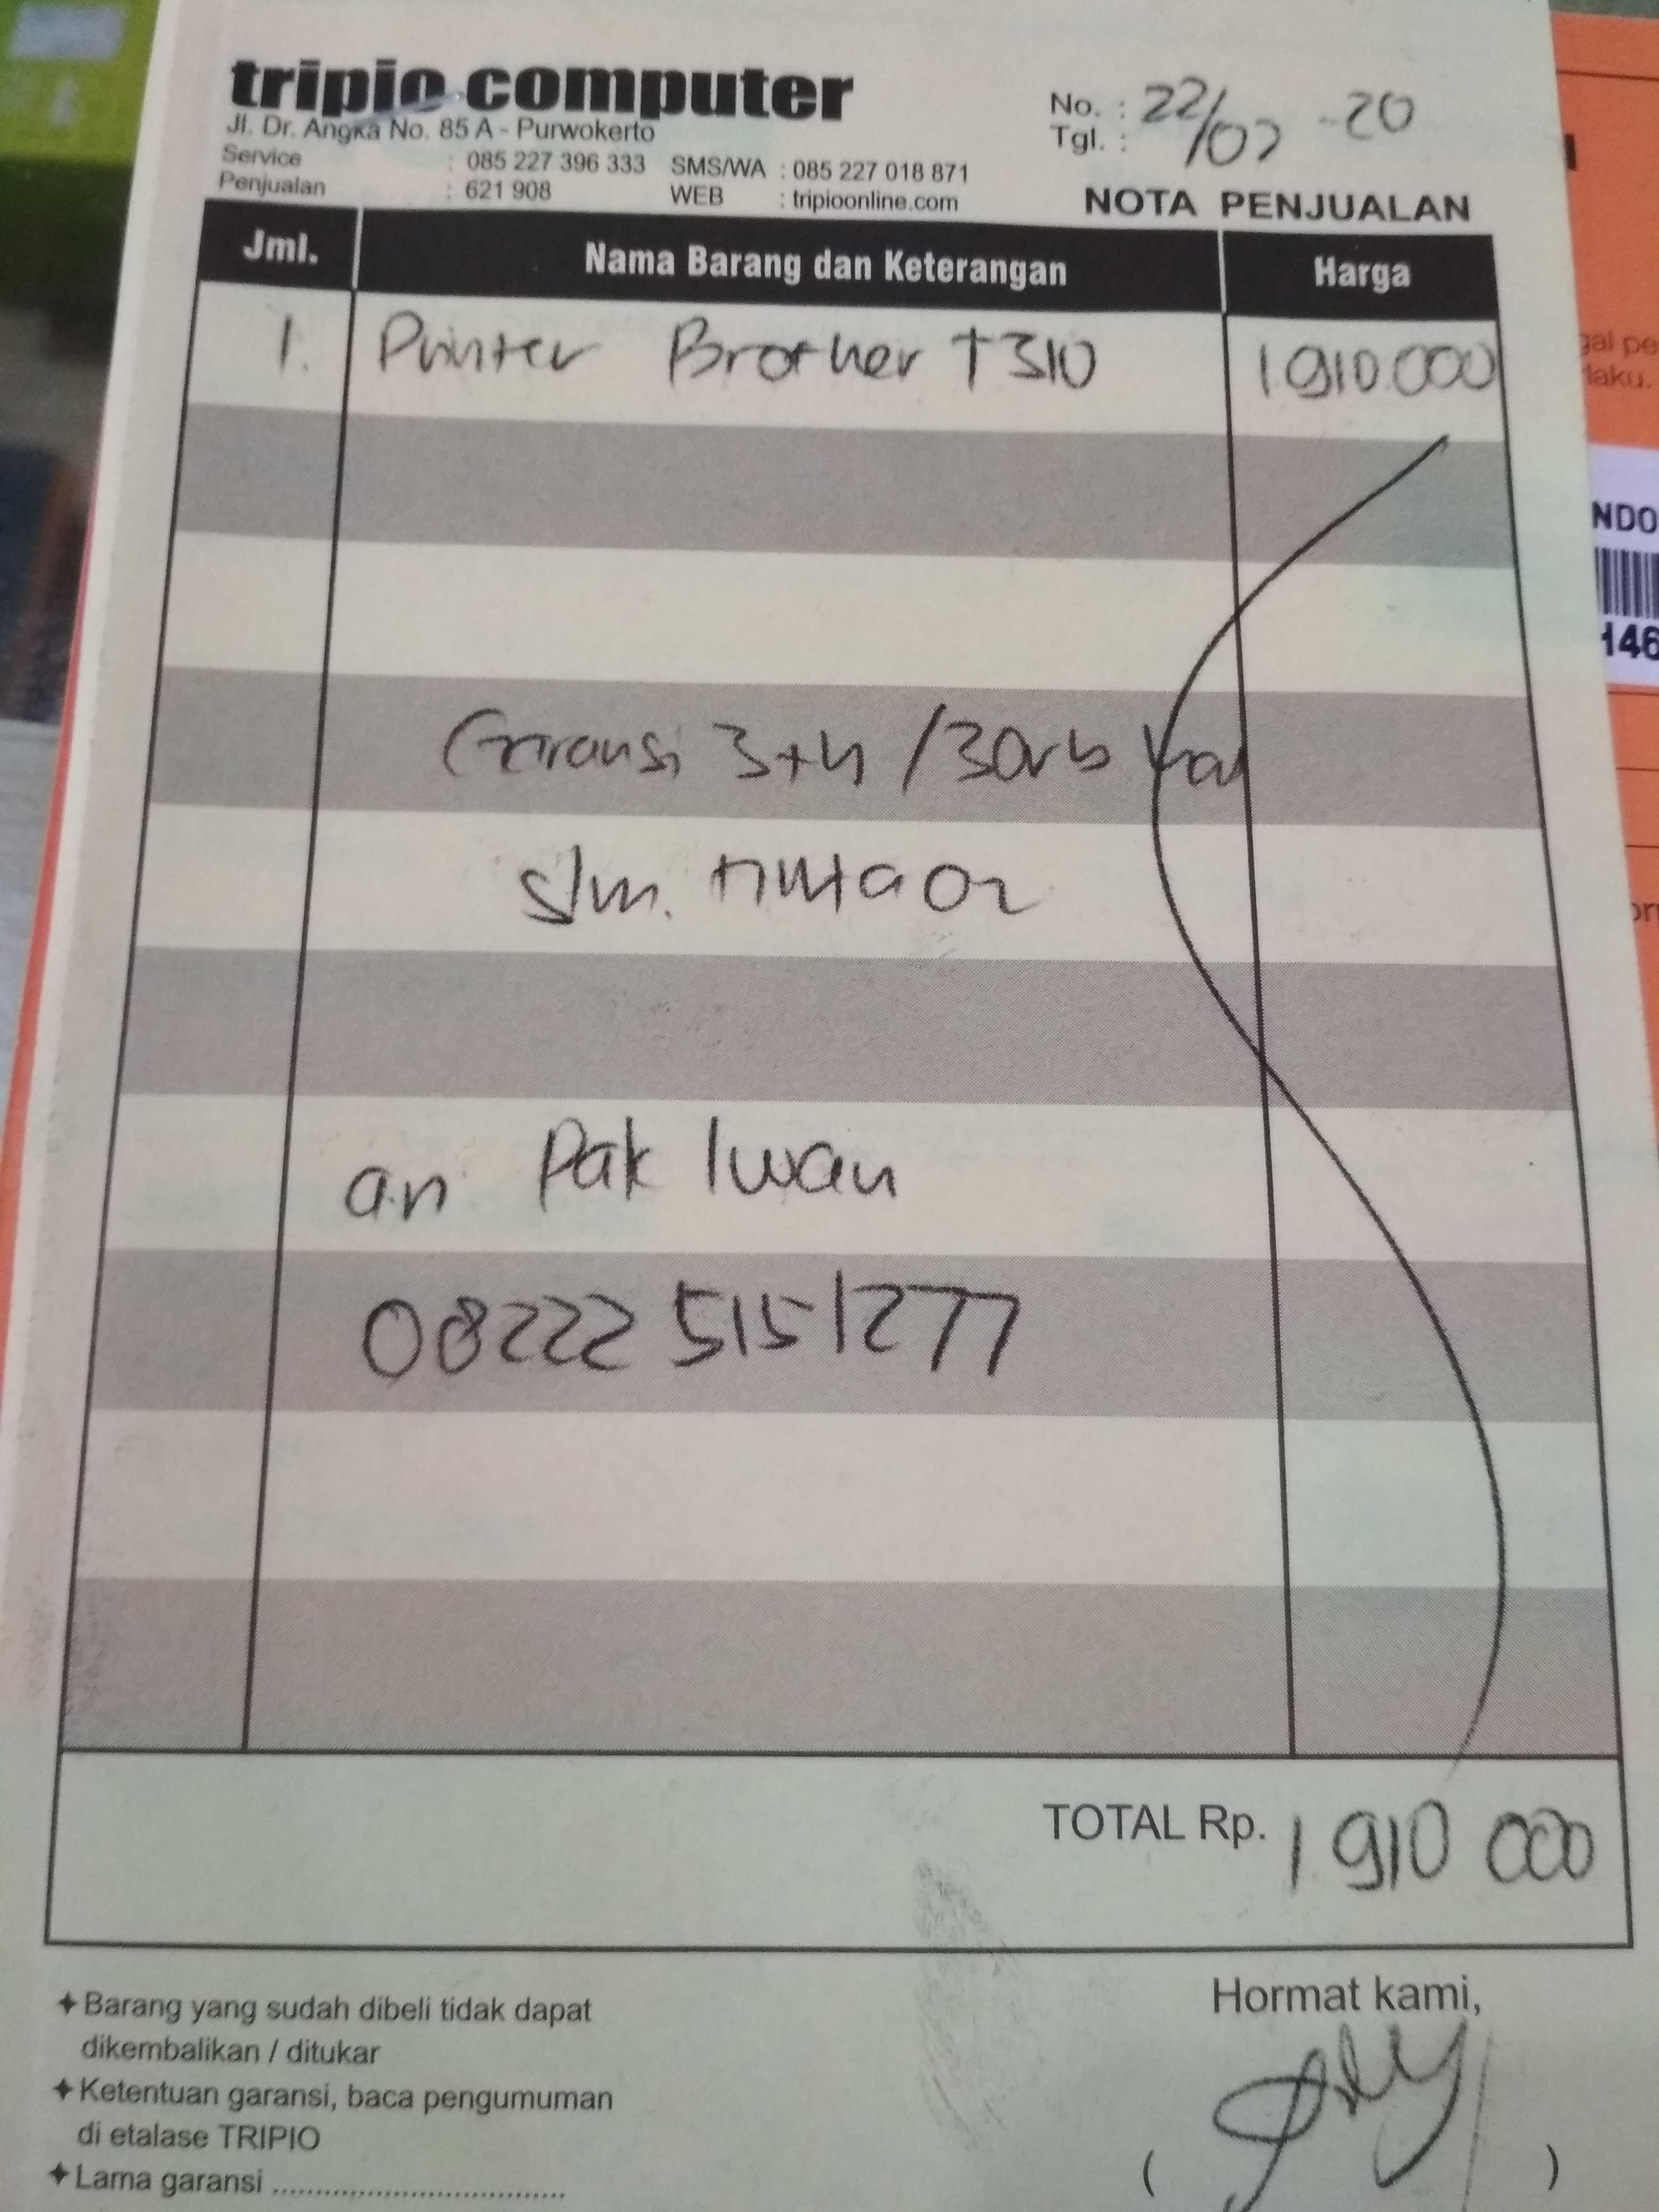 tripio computer
Jl. Dr. Angka No. 85 A - Purwokerto
Service : 085 227 396 333 SMS/WA : 085 227 018 871
Penjualan : 621 908 WEB : tripioonline.com
No. : 22/07 -20
Tgl. :
NOTA PENJUALAN
Jml. Nama Barang dan Keterangan Harga
1. Printer Brother T310 1.910.000
Garansi 3th /30rb hal
s/m. tinta Or
a.n Pak Iwan
08222 5151277
TOTAL Rp. 1 910 000
Barang yang sudah dibeli tidak dapat
dikembalikan / ditukar
Ketentuan garansi, baca pengumuman
di etalase TRIPIO
Lama garansi ..................................
Hormat kami,
( )
gal pe
laku.
NDO
146